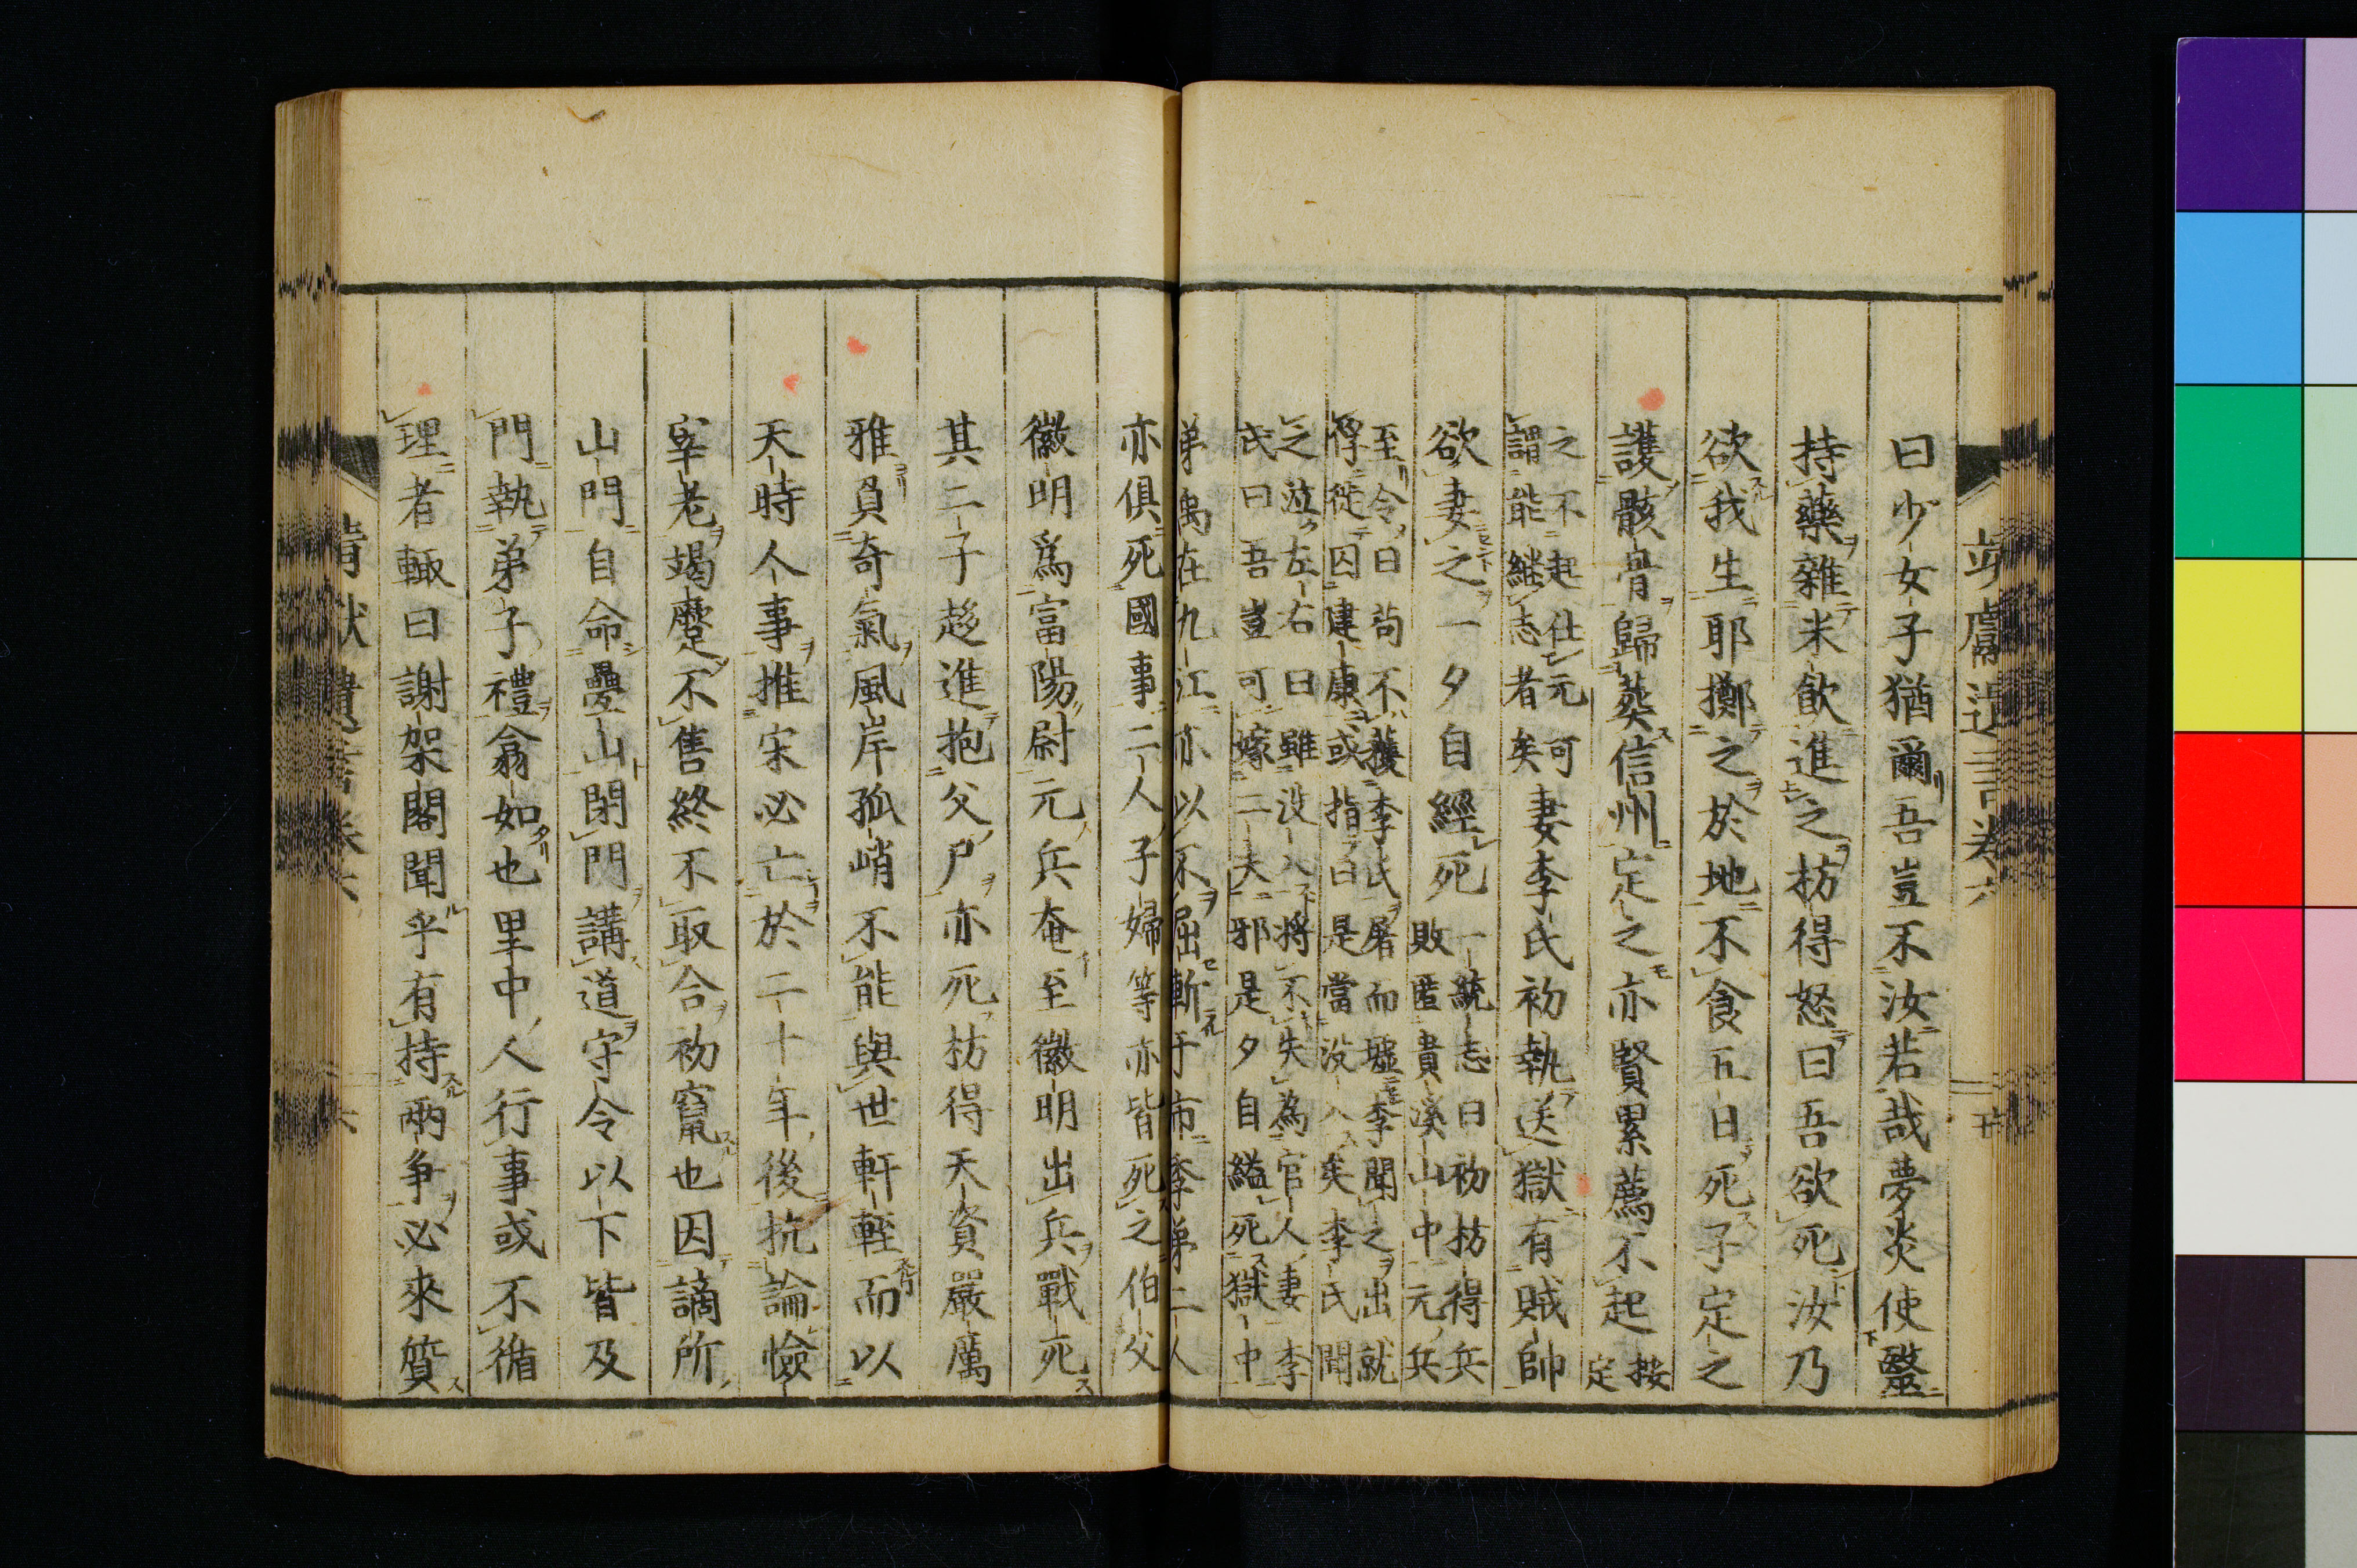 曰少女子猶爾吾豈不汝若哉夢炎使毉
持藥雜米飲進之枋得怒曰吾欲死汝乃
欲我生耶擲之於地不食五日死子定之
護骸骨歸葬信州定之亦賢累薦不起按定
之不起仕元可
謂能繼志者矣妻李氏初執送獄有賊帥
欲妻之一夕自經死一統志曰初枋得兵
敗匿貴溪山中元兵
至令曰苟不獲李氏屠而墟李聞之出就
俘徙囚建康或指曰是當沒入矣李氏聞
之泣左右曰雖沒入將不失為官人妻李
氏曰吾豈可嫁二夫邪是夕自縊死獄中
弟禹在九江亦以不屈斬于市季弟二人
亦俱死國事二人子婦等亦皆死之伯父
徽明爲富陽尉元兵奄至徽明出兵戰死
其二子趍進抱父尸亦死枋得天資嚴厲
雅負奇氣風岸孤峭不能與世軒輊而以
天時人事推宋必亡於二十年後抗論憸
宰老竭蹙不售終不取合初竄也因謫所
山門自命疊山閉門講道守令以下皆及
門執弟子禮翕如也里中人行事或不循
理者輒曰謝架閣聞乎有持兩爭必來質